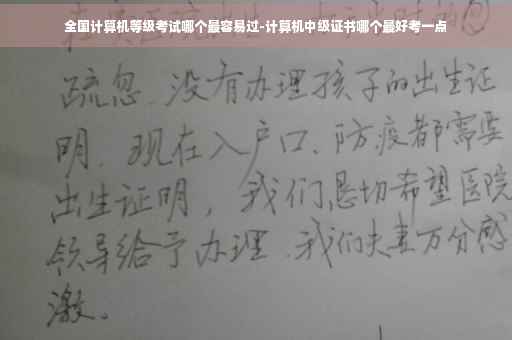 全国计算机等级考试哪个最容易过-计算机中级证书哪个最好考一点
疏忽、没有办理孩子的出生证
明、现在入户口、防疫都需要
出生证明，我们恳切希望医院
领导给予办理、我们夫妻万分感
激。